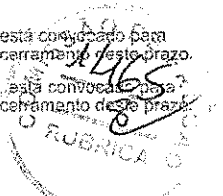 está convocado para
cerramento deste prazo.
está convocado para
cerramento deste prazo.
1465
RUBRICA